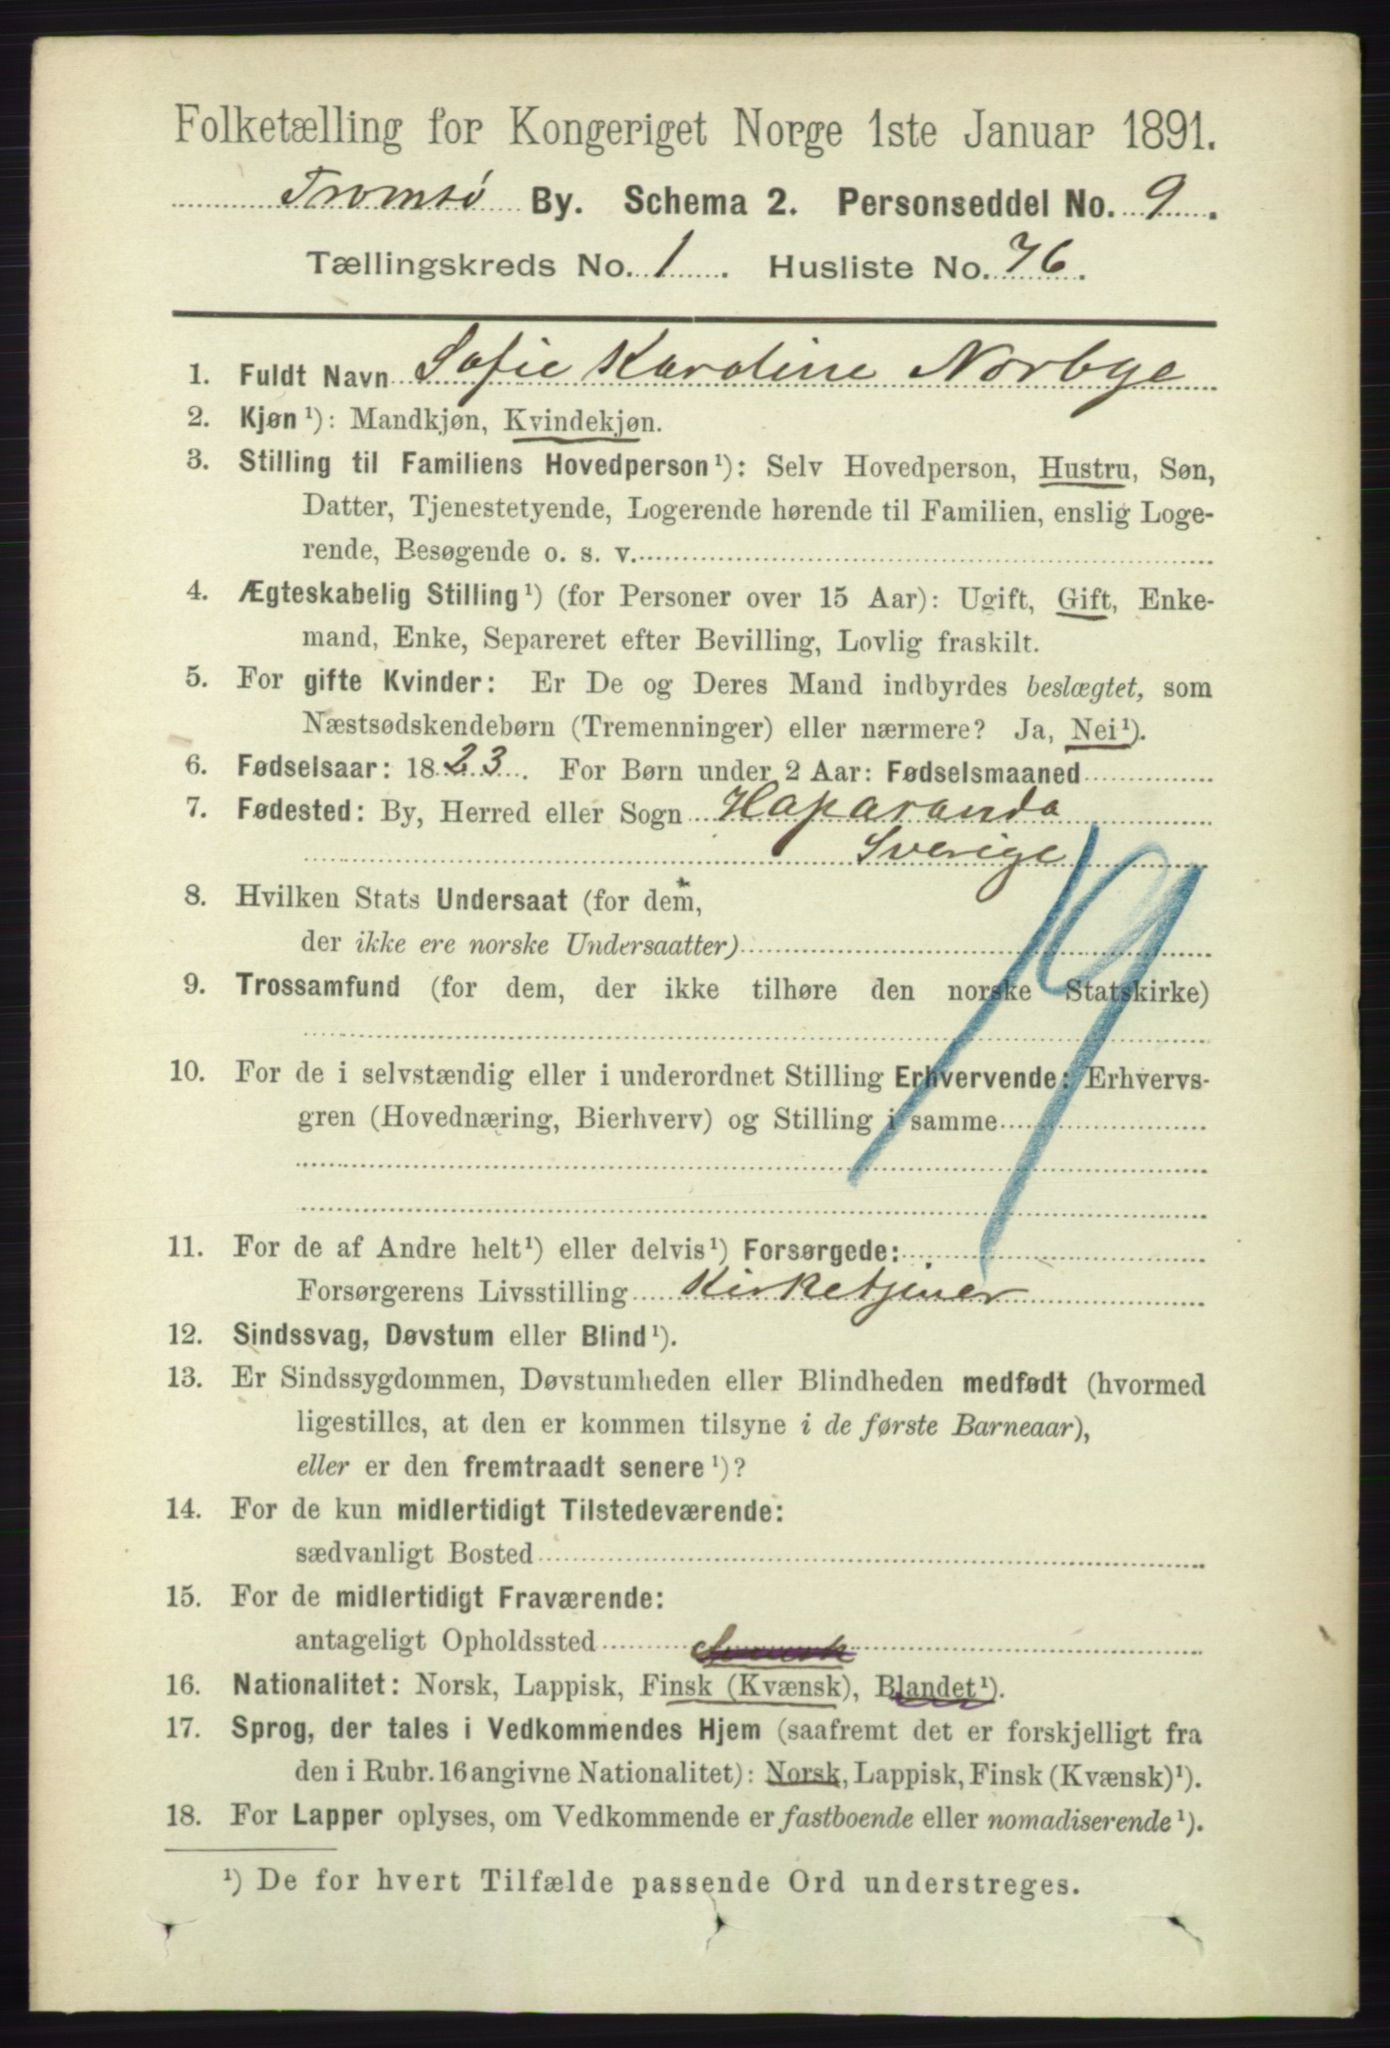 Folketælling for Kongeriget Norge 1ste Januar 1891.
Tromsø By. Schema 2. Personseddel No. 9.
Tællingskreds No. 1. Husliste No. 76.
1. Fuldt Navn Sofie Karoline Norbye
2. Kjøn¹): Mandkjøn, Kvindekjøn.
3. Stilling til Familiens Hovedperson¹): Selv Hovedperson, Hustru, Søn,
Datter, Tjenestetyende, Logerende hørende til Familien, enslig Loge-
rende, Besøgende o. s. v.
4. Ægteskabelig Stilling¹) (for Personer over 15 Aar): Ugift, Gift, Enke-
mand, Enke, Separeret efter Bevilling, Lovlig fraskilt.
5. For gifte Kvinder: Er De og Deres Mand indbyrdes beslægtet, som
Næstsødskendebørn (Tremenninger) eller nærmere? Ja, Nei¹).
6. Fødselsaar: 1823. For Børn under 2 Aar: Fødselsmaaned
7. Fødested: By, Herred eller Sogn Haparanda
Sverige
8. Hvilken Stats Undersaat (for dem,
der ikke ere norske Undersaatter)
9. Trossamfund (for dem, der ikke tilhøre den norske Statskirke)
19
10. For de i selvstændig eller i underordnet Stilling Erhvervende: Erhvervs-
gren (Hovednæring, Bierhverv) og Stilling i samme
11. For de af Andre helt¹) eller delvis¹) Forsørgede:
Forsørgerens Livsstilling Kirketjener
12. Sindssvag, Døvstum eller Blind¹).
13. Er Sindssygdommen, Døvstumheden eller Blindheden medfødt (hvormed
ligestilles, at den er kommen tilsyne i de første Barneaar),
eller er den fremtraadt senere¹)?
14. For de kun midlertidigt Tilstedeværende:
sædvanligt Bosted
15. For de midlertidigt Fraværende:
antageligt Opholdssted Svensk
16. Nationalitet: Norsk, Lappisk, Finsk (Kvænsk), Blandet¹).
17. Sprog, der tales i Vedkommendes Hjem (saafremt det er forskjelligt fra
den i Rubr. 16 angivne Nationalitet): Norsk, Lappisk, Finsk (Kvænsk)¹).
18. For Lapper oplyses, om Vedkommende er fastboende eller nomadiserende¹).
¹) De for hvert Tilfælde passende Ord understreges.